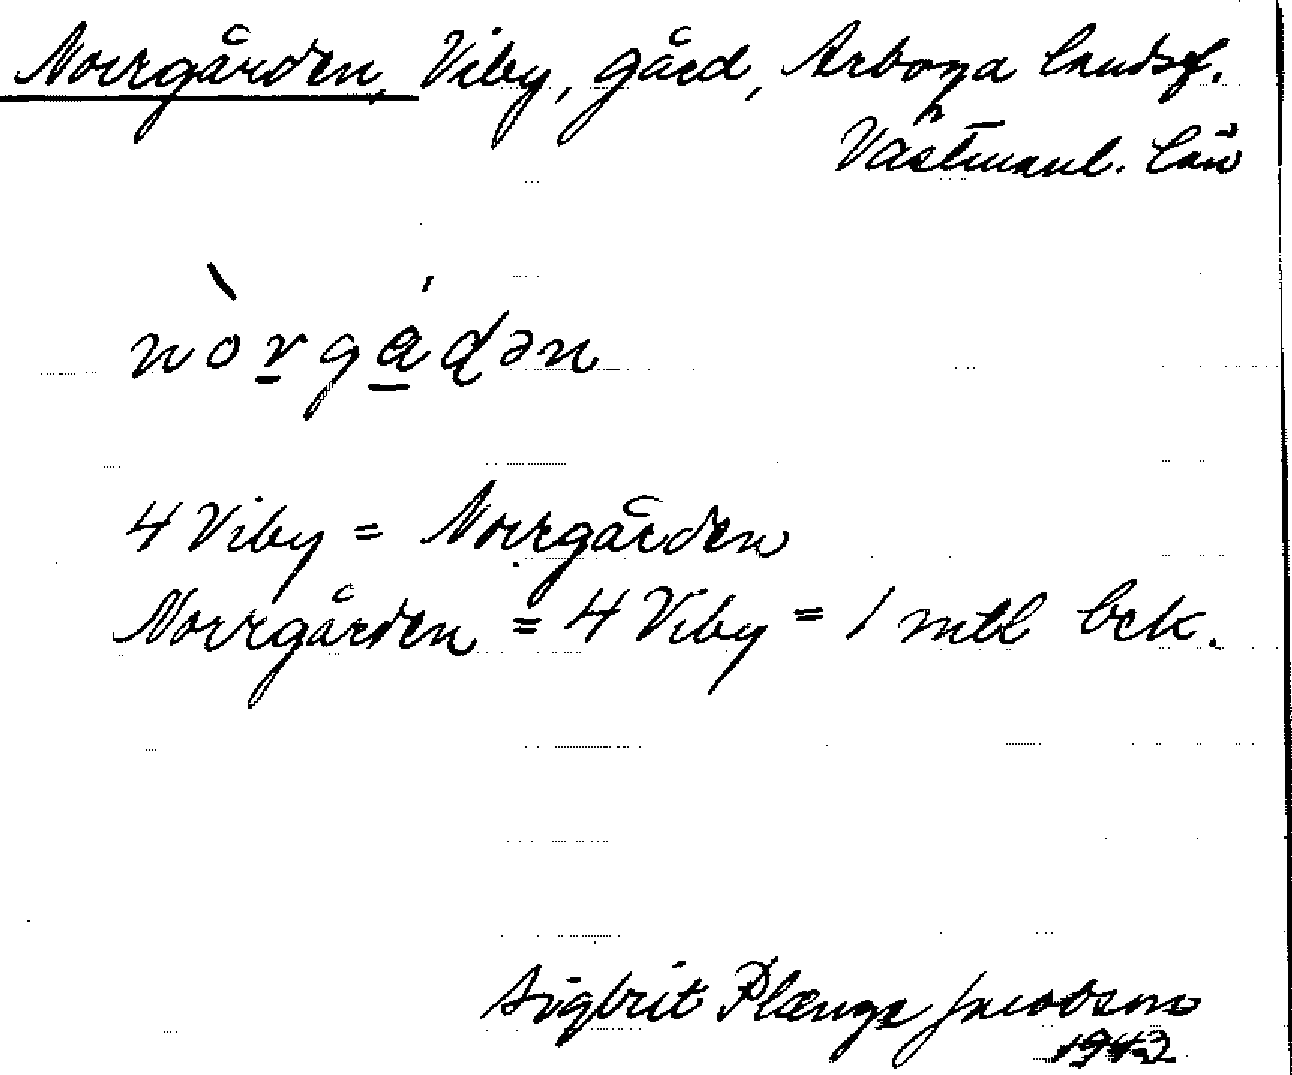 Norrgården, Viby, gård, Arboga landsf.
Västmanl. län
nòrgádən
4 Viby = Norrgården
Norrgården = 4 Viby = 1 mtl bek.
Sigbrit Plænge Jacobson
1943